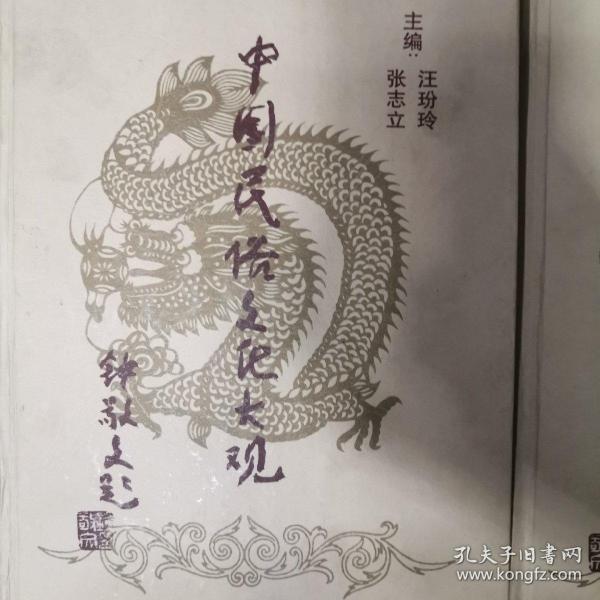 主编：汪玢玲
张志立
中国民俗文化大观
钟敬文题
孔夫子旧书网
www.kongfz.com